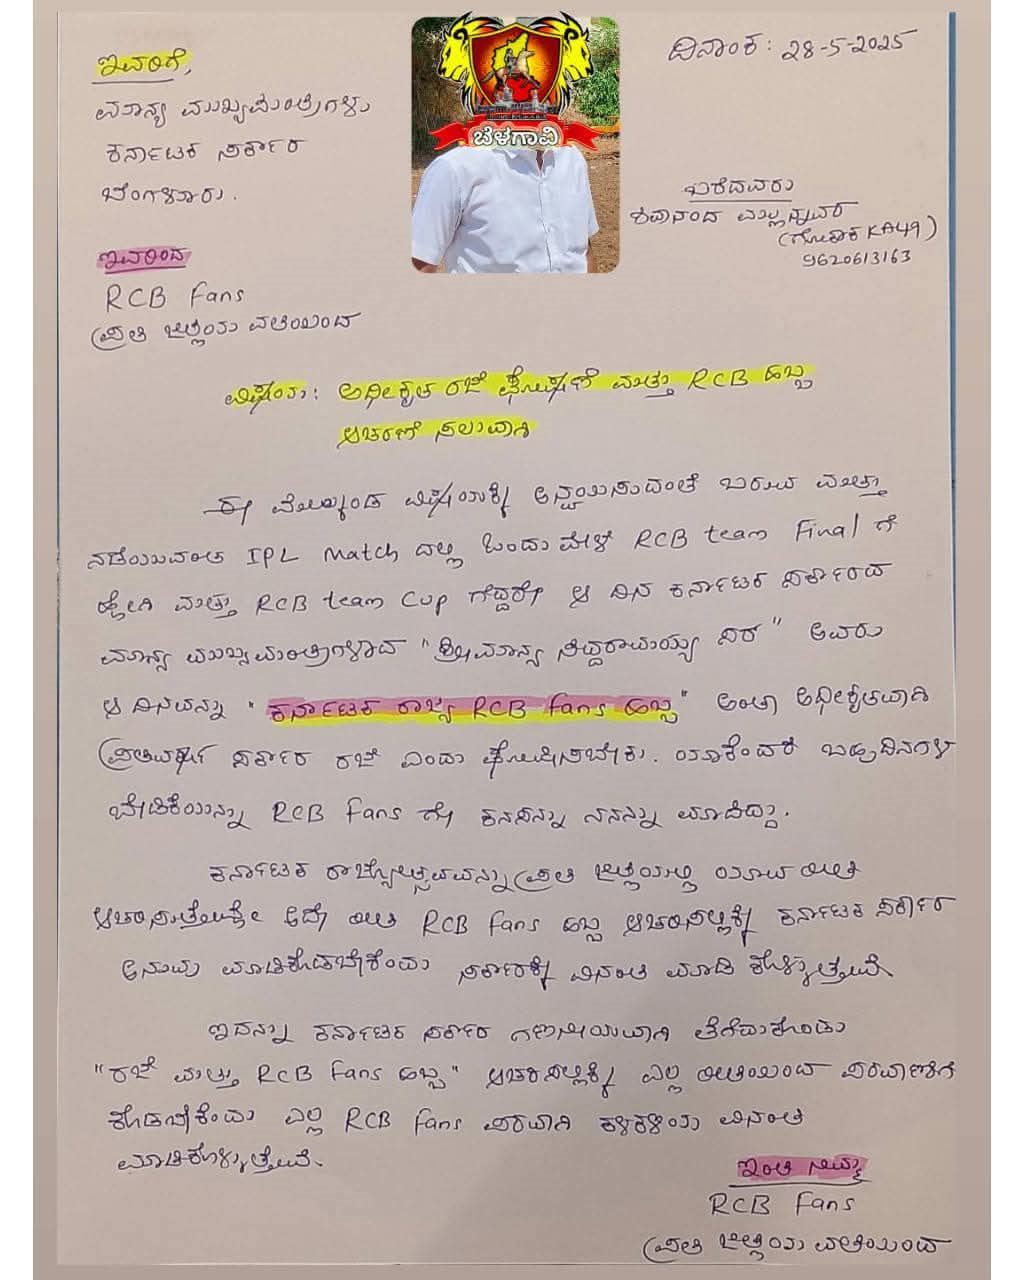 ಇವರಿಗೆ,
ಮಾನ್ಯ ಮುಖ್ಯಮಂತ್ರಿಗಳು
ಕರ್ನಾಟಕ ಸರ್ಕಾರ
ಬೆಂಗಳೂರು.
ಬೆಳಗಾವಿ
ದಿನಾಂಕ: 28-5-2025
ಬರೆದವರು
ಶಿವಾನಂದ ಮಲ್ಲನ್ನವರ
(ಗೋಕಾಕ KA49)
9620613163
ಇವರಿಂದ
RCB fans
ಪ್ರತಿ ಜಿಲ್ಲೆಯ ವತಿಯಿಂದ
ವಿಷಯ: ಅಧೀಕೃತ ರಜೆ ಘೋಷಣೆ ಮತ್ತು RCB ಹಬ್ಬ
ಆಚರಣೆ ಸಲುವಾಗಿ
ಈ ಮೇಲ್ಕಂಡ ವಿಷಯಕ್ಕೆ ಅನ್ವಯಿಸುವಂತೆ ಬರುವ ಮತ್ತು
ನಡೆಯುವಂತ IPL Match ದಲ್ಲಿ ಒಂದು ವೇಳೆ RCB team Final ಗೆ
ಹೋಗಿ ಮತ್ತು RCB team Cup ಗೆದ್ದರೇ ಆ ದಿನ ಕರ್ನಾಟಕ ಸರ್ಕಾರದ
ಮಾನ್ಯ ಮುಖ್ಯಮಂತ್ರಿಗಳಾದ "ಶ್ರೀಮಾನ್ಯ ಸಿದ್ದರಾಮಯ್ಯ ಸರ" ಅವರು
ಆ ದಿನವನ್ನು "ಕರ್ನಾಟಕ ರಾಜ್ಯ RCB fans ಹಬ್ಬ" ಅಂತಾ ಅಧೀಕೃತವಾಗಿ
ಪ್ರತಿವರ್ಷ ಸರ್ಕಾರ ರಜೆ ಎಂದು ಘೋಷಿಸಬೇಕು. ಯಾಕೆಂದರೆ ಬಹುದಿನಗಳ
ಬೇಡಿಕೆಯನ್ನು RCB fans ಗೇ ಕನಸನ್ನು ನನಸು ಮಾಡಿದ್ದು.
ಕರ್ನಾಟಕ ರಾಜ್ಯೋತ್ಸವವನ್ನು ಪ್ರತಿ ಜಿಲ್ಲೆಯಲ್ಲಿ ಯಾವ ರೀತಿ
ಆಚರಿಸುತ್ತೇವೋ ಅದೇ ರೀತಿ RCB fans ಹಬ್ಬ ಆಚರಿಸಲಿಕ್ಕೆ ಕರ್ನಾಟಕ ಸರ್ಕಾರ
ಅನುವು ಮಾಡಿಕೊಡಬೇಕೆಂದು ಸರ್ಕಾರಕ್ಕೆ ವಿನಂತಿ ಮಾಡಿ ಕೊಳ್ಳುತ್ತೇವೆ.
ಇದನ್ನು ಕರ್ನಾಟಕ ಸರ್ಕಾರ ಗಣನೀಯವಾಗಿ ತೆಗೆದುಕೊಂಡು
"ರಜೆ ಮತ್ತು RCB fans ಹಬ್ಬ" ಆಚರಿಸಲಿಕ್ಕೆ ಎಲ್ಲ ರೀತಿಯಿಂದ ಪರವಾಣಿಗೆ
ಕೊಡಬೇಕೆಂದು ಎಲ್ಲ RCB fans ಪರವಾಗಿ ಕಳಕಳಿಯ ವಿನಂತಿ
ಮಾಡಿಕೊಳ್ಳುತ್ತೇವೆ.
ಇಂತಿ ನಿಮ್ಮ
RCB fans
ಪ್ರತಿ ಜಿಲ್ಲೆಯ ವತಿಯಿಂದ